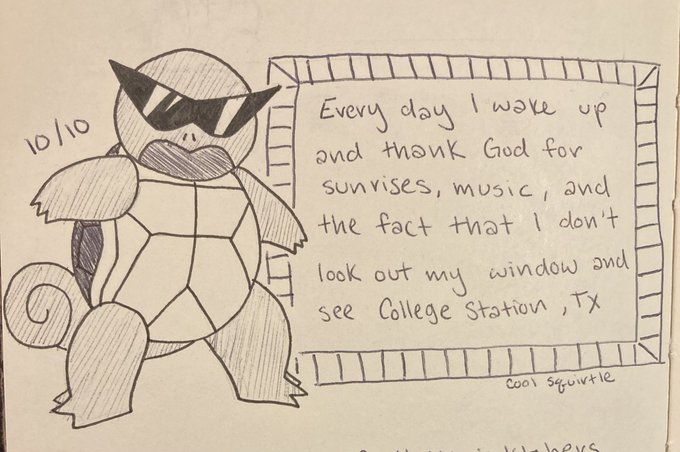 10/10
Every day I wake up
and thank God for
sunrises, music, and
the fact that I don't
look out my window and
see College Station, TX
cool squirtle